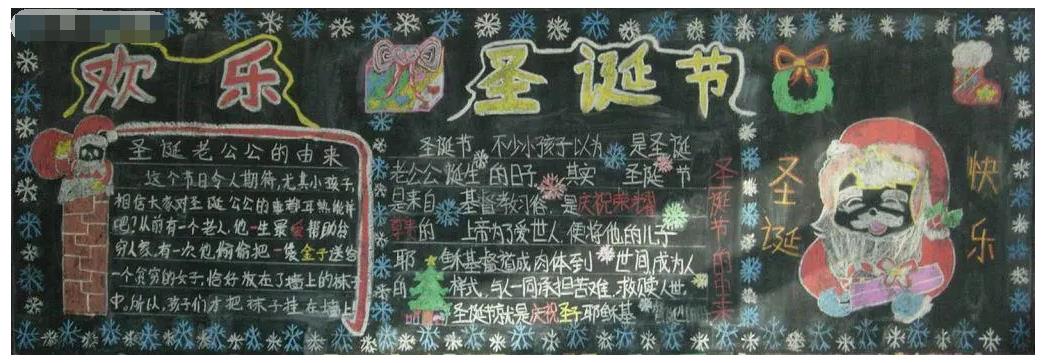 欢乐
圣诞节
圣诞老公公的由来
这个节日令人期待,尤其小孩子,
相信大家对圣诞公公的事都耳熟能详
吧?从前有一个老人,他一生最爱帮助
穷人家,有一次他偷偷把一袋金子送给
一个贫穷的女子,恰好放在了墙上的袜子
中,所以,孩子们才把袜子挂在墙上
圣诞节 不少小孩子以为 是圣诞
老公公诞生的日子,其实 圣诞节
是来自 基督教习俗,是庆祝
的 上帝为了爱世人,使将他的儿子
耶稣基督造成肉体到 世间成为人
的 样式,与人一同承担苦难,拯救人世,
圣诞节就是庆祝圣子耶稣基
圣诞节的由来
圣诞
快乐